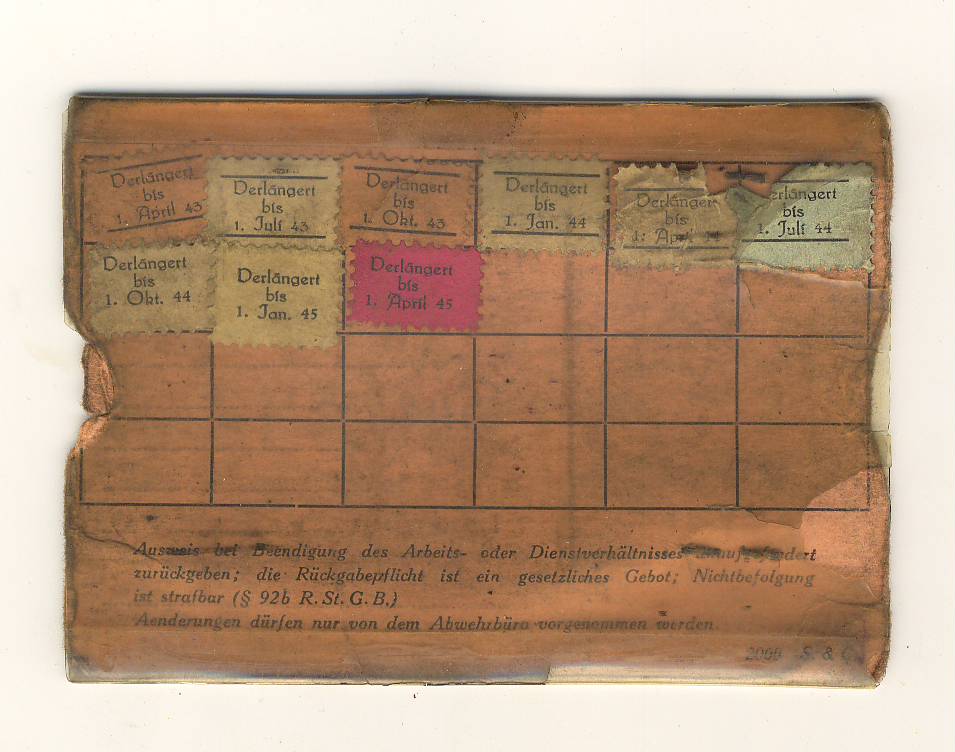 Verlängert
bis
1. April 43
Verlängert
bis
1. Juli 43
Verlängert
bis
1. Okt. 43
Verlängert
bis
1. Jan. 44
Verlängert
bis
1. April 44
Verlängert
bis
1. Juli 44
Verlängert
bis
1. Okt. 44
Verlängert
bis
1. Jan. 45
Verlängert
bis
1. April 45
Ausweis bei Beendigung des Arbeits- oder Dienstverhältnisses unaufgefordert
zurückgeben; die Rückgabepflicht ist ein gesetzliches Gebot; Nichtbefolgung
ist strafbar (§ 92b R. St. G. B.)
Aenderungen dürfen nur von dem Abwehrbüro vorgenommen werden.
2000 S. &